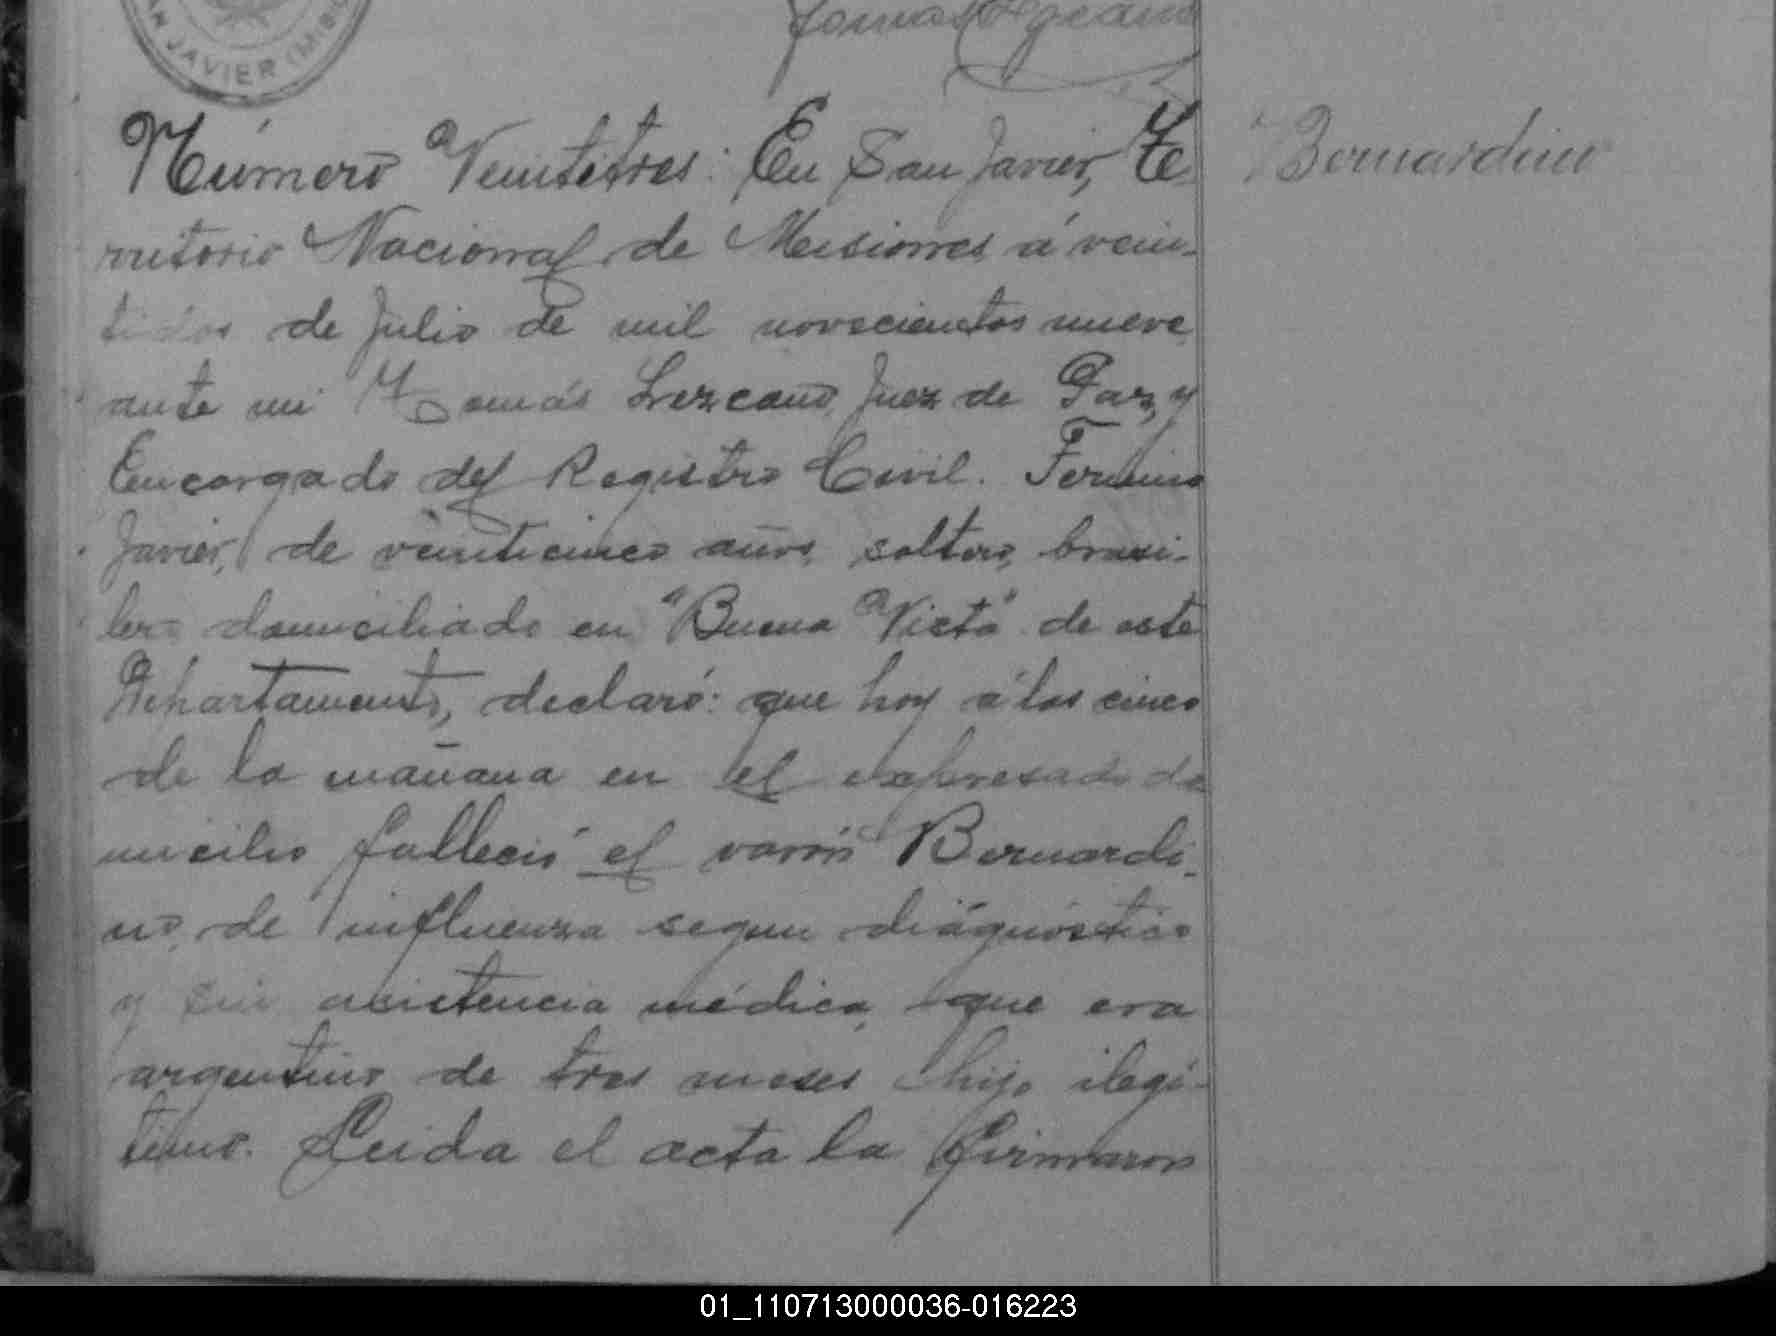 SAN JAVIER (MIS
Tomás Lezcano
Número Veintitres: En San Javier, Te-
rritorio Nacional de Misiones á vein-
tidos de Julio de mil novecientos nueve
ante mi Tomás Lezcano, Juez de Paz, y
Encargado del Registro Civil. Fermino
Javier, de veinticinco años, soltero, brasi-
lero domiciliado en "Buena Vista" de este
Departamento, declaró: que hoy á las cinco
de la mañana en el expresado do
micilio falleció el varón Bernardi-
no, de influenza segun diágnóstico
y sin asistencia médica, que era
argentino de tres meses hijo ilegí-
timo. Leida el acta la firmaron
Bernardino
01_110713000036-016223